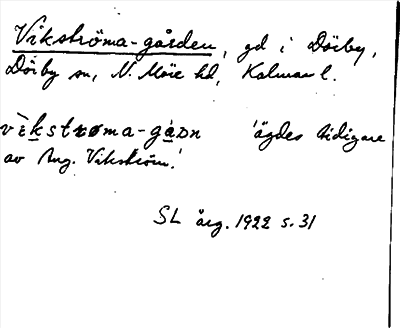 Vikströma-gården, gd i Dörby,
Dörby sn, N. Möre hd, Kalmar l.
vɛ̀kstrøma-gáɒn 'ägdes tidigare
av Aug. Vikström.'
SL årg. 1922 s. 31